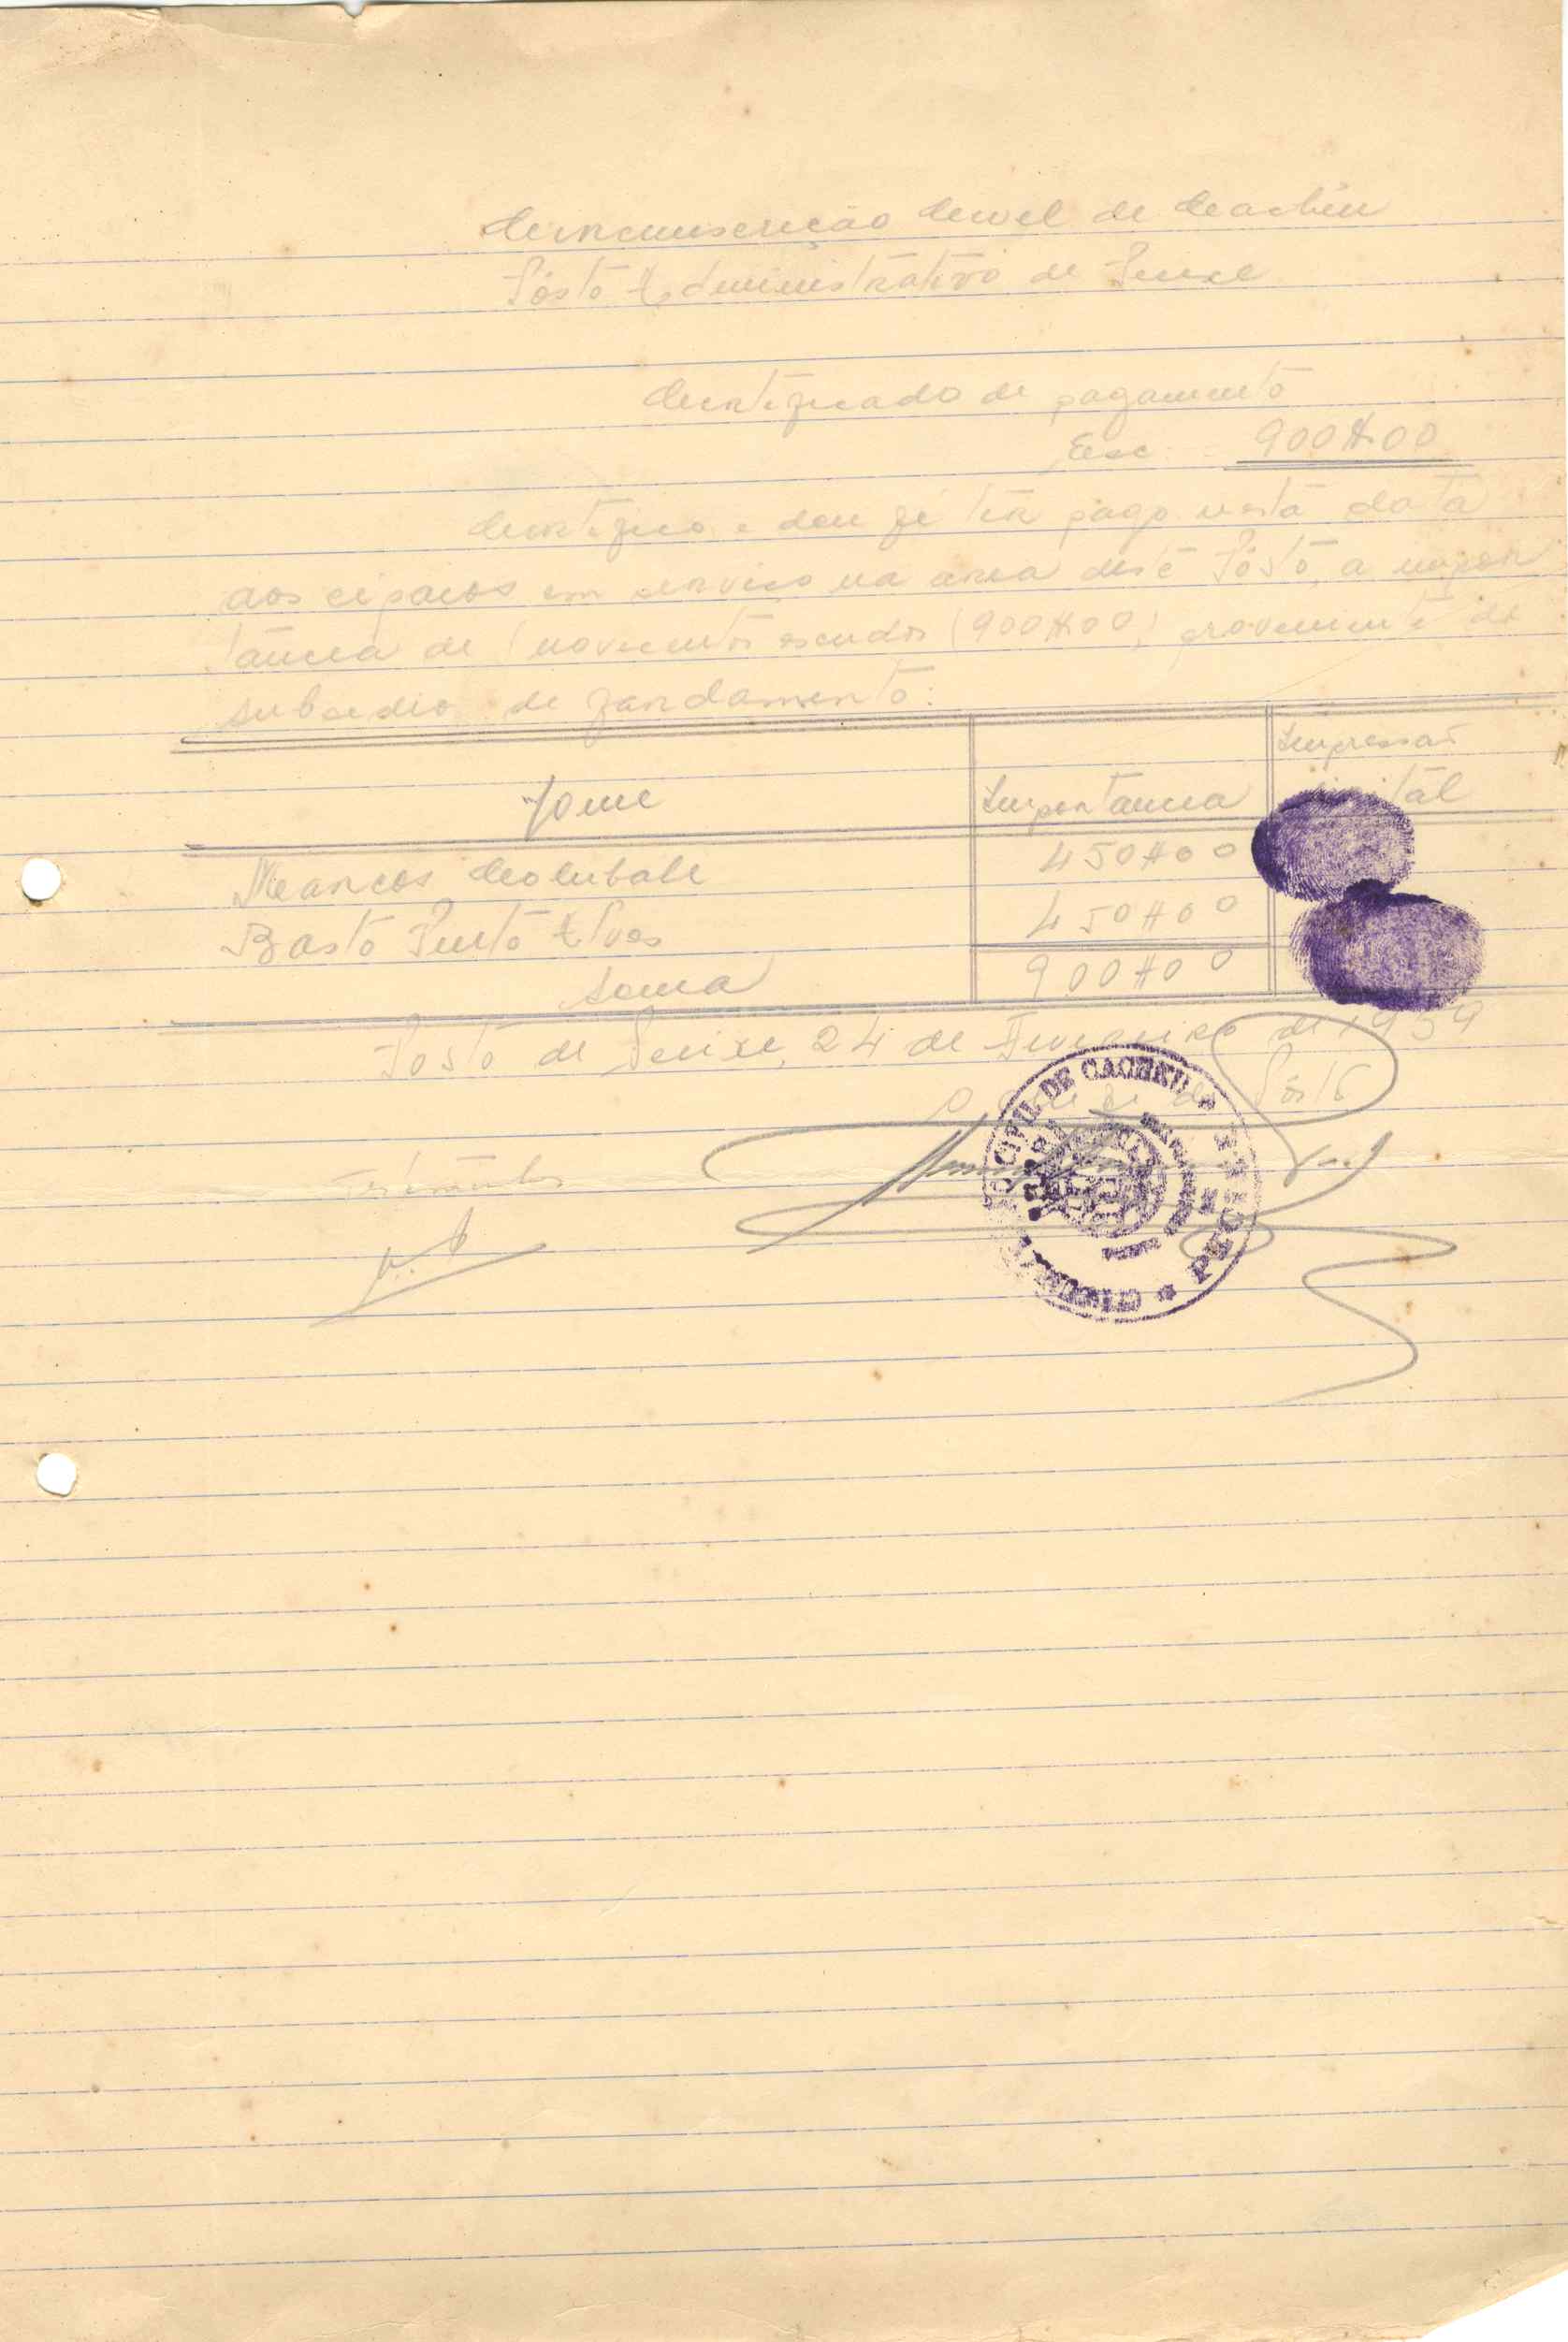 Circunscrição Civil de Cacheu
Pôsto Administrativo de Pecixe
Certificado de pagamento
Esc. 900$00
Certifico e dou fé ter pago nesta data
aos cipaios em serviço na area deste Pôsto, a impor
tância de (novecentos escudos (900$00) proveniente de
subsedio de fardamento:
Nome
Importancia
Impressão
ital
Marcos Colubali 450$00
Basto Pinto Alves 450$00
Soma 900$00
Posto de Pecixe, 24 de Fevereiro de 1959
O de do Pôsto
CIVIL DE CACHEU * PECIXE *
Testemunhas